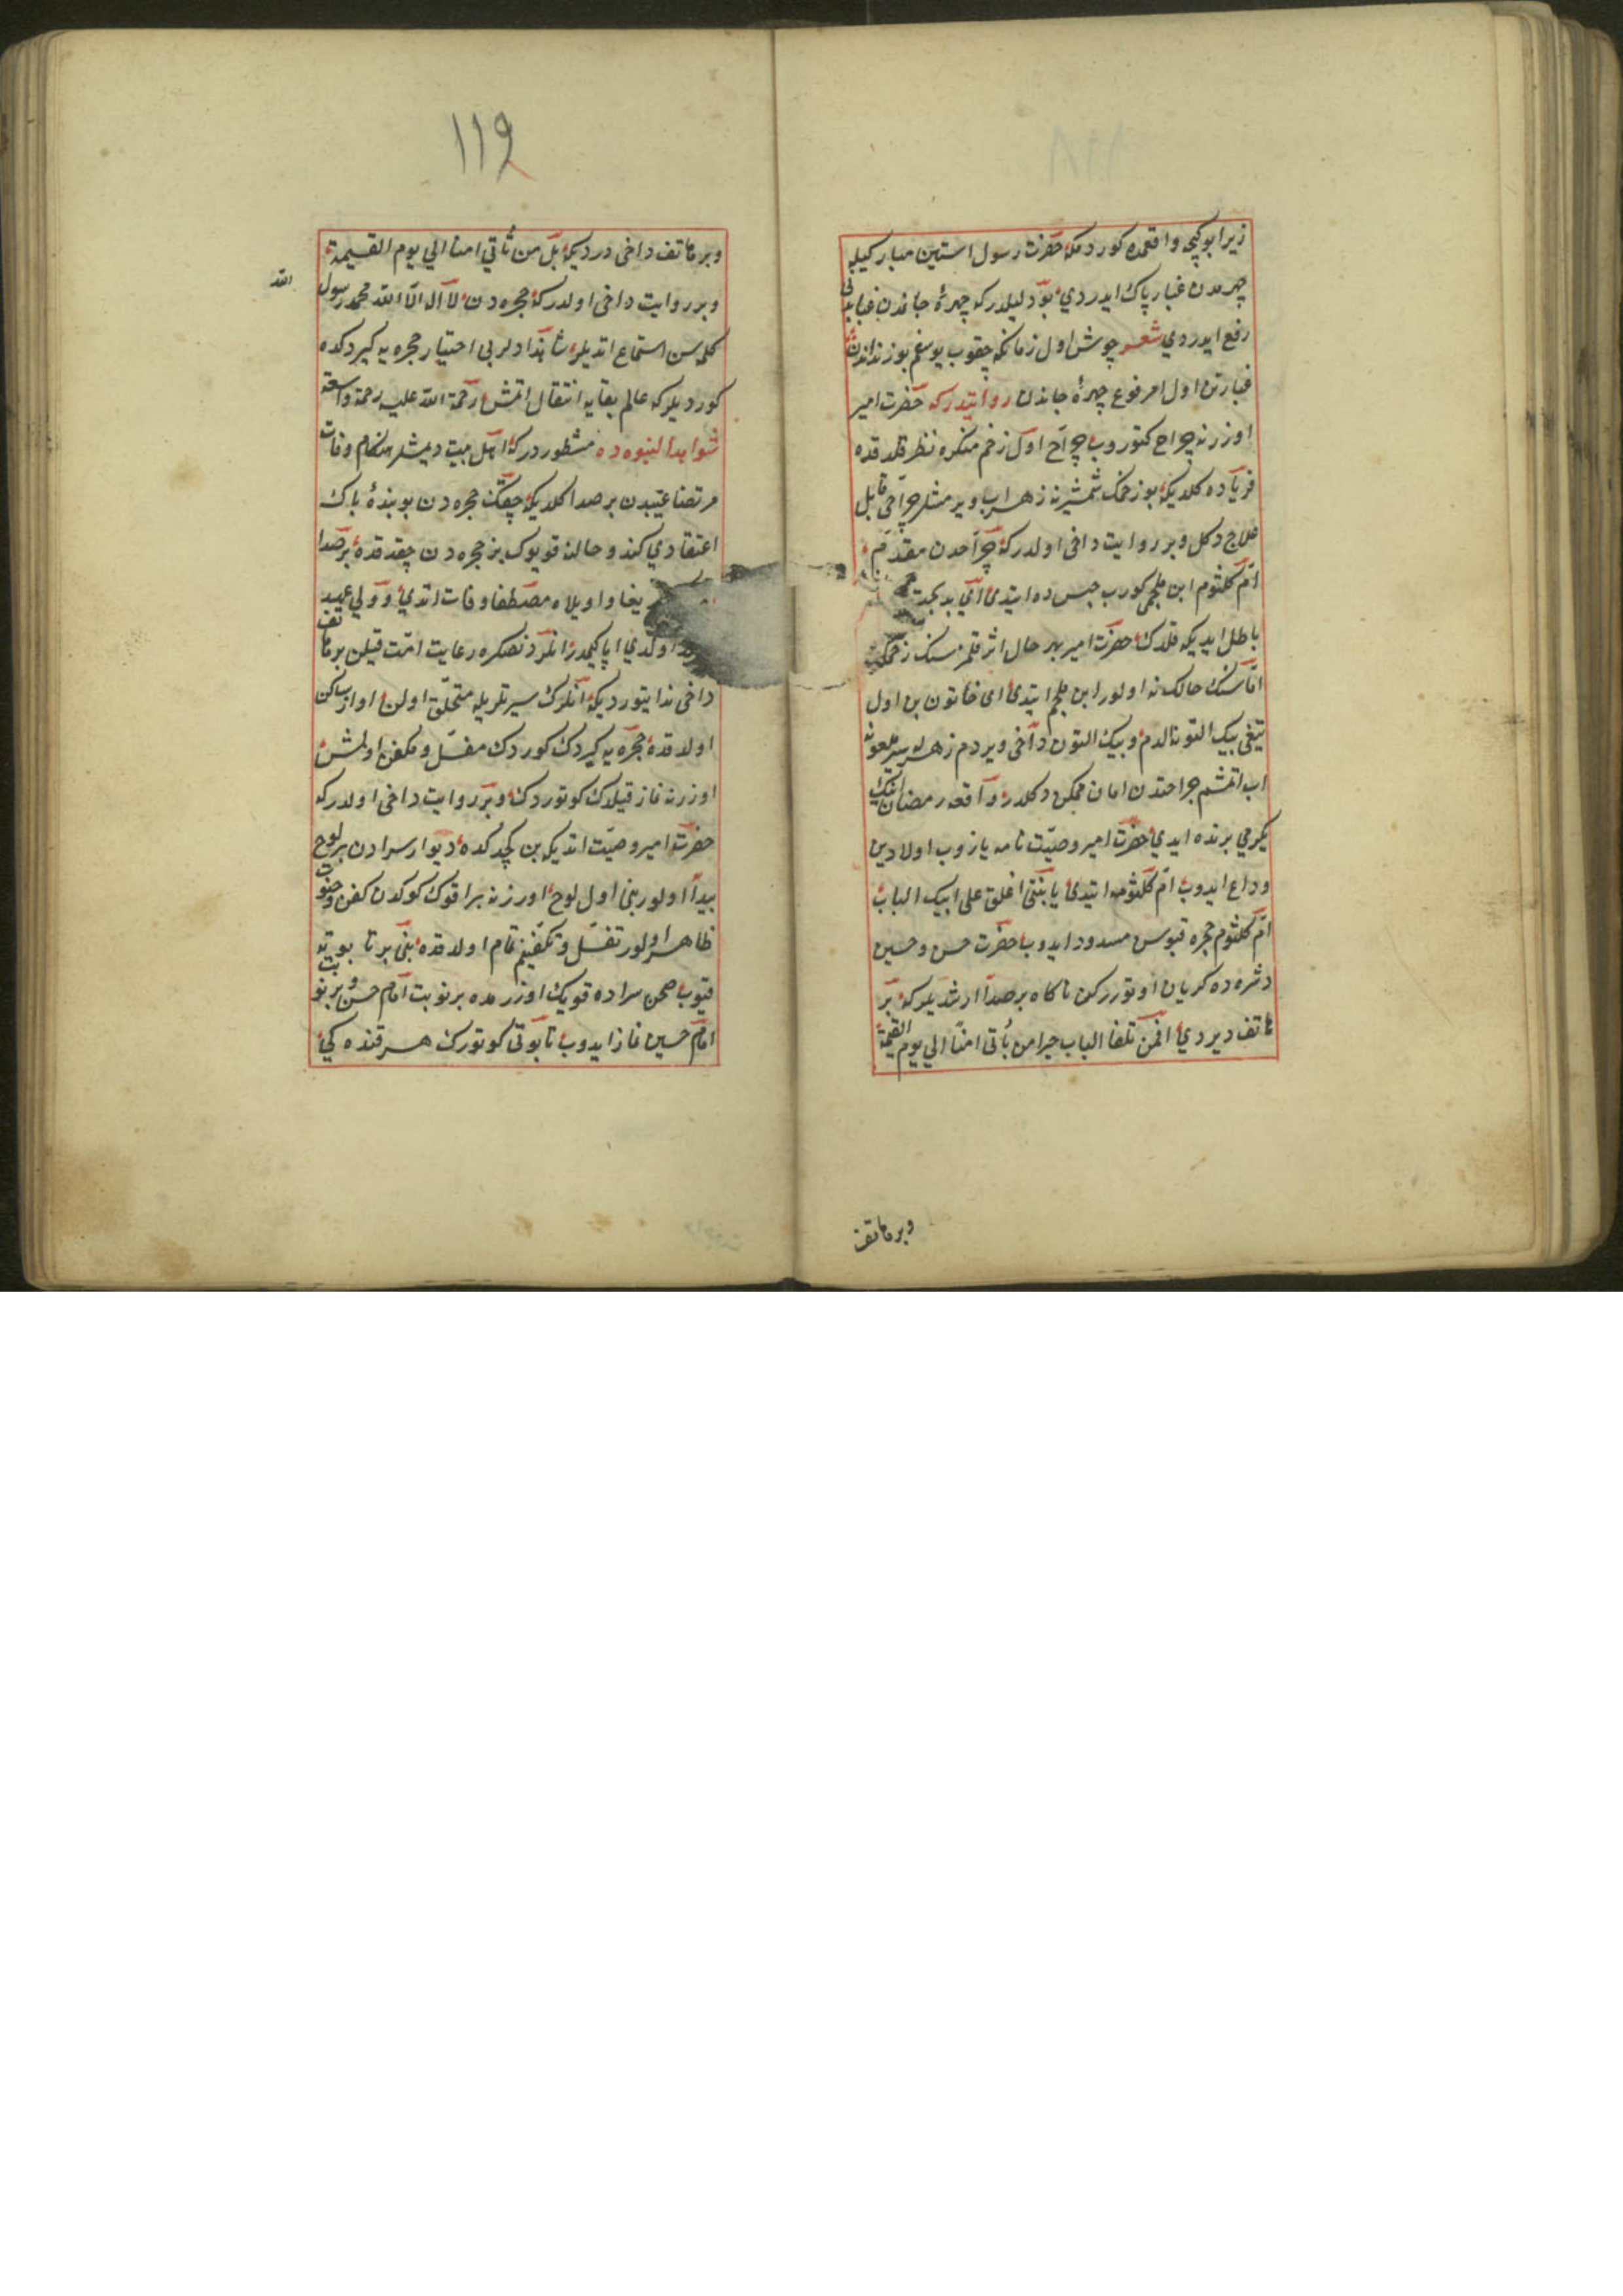 زیرا بو کیجه واقعه‌ده کوردمکه حضرت رسول استین مبارکیله
چهرمدن غبار پاک ایدردی بو دلیلدرکه چهرهٔ جاندن غبار بدنی
رفع ایدردی شعر چوش اول زمانکه چقوب یوسفم بو زنداندن
غبار تن اول مرفوع چهرهٔ جاندن روایتدرکه حضرت امیر
اوزرنه جراح کتوروب جراح اول زخم منکره نظر قلدقده
فریاده کلدیکه بو زخمک شمشیرنه زهراب ویرمشلر جراحی قابل
علاج دکل و بر روایت داخی اولدرکه جراحدن مقدم
ام کلثوم ابن ملجمی کورب حبس ده ایتدی ای بدبخت
باطل ایدیکه قلدک حضرت امیر بهر حال اثر قلمز سنک زخمک
اما سنک حالک نه اولور ابن ملجم ایتدی ای خاتون بن اول
تیغی بیک التونه الدم و بیک التون داخی ویردم زهر
اب اتمشم جراحتدن امان ممکن دکلدر و اقعه رمضانک
یکرمی برنده ایدی حضرت امیر وصیت نامه یازوب اولادین
وداع ایدوب ام کلثومه ایتدی یا بنتی اغلق علی ابیک الباب
ام کلثوم حجره قپوسن مسدود ایدوب حضرت حسن و حسین
دشره‌ده کریان اوتوررکن ناکاه بر صدا ارشدیلرکه بر
هاتف دیردی افمن تلقا الباب خیرا من یأتی امنا الی یوم القیمة
وبر هاتف
١١٩
وبر هاتف داخی دردیکه بل من یأتی امنا الی یوم القیمة
وبر روایت داخی اولدرکه حجره‌دن لا اله الا الله محمد رسول
الله
کلمه‌سن استماع اتدیلر شاهزادلر بی اختیار حجره‌یه کیردکده
کوردیلرکه عالم بقایه انتقال اتمش رحمة الله علیه رحمة واسعة
شواهد النبوه ده مسطوردرکه اهل بیت دیمشلر هنکام وفات
مرتضا غیبدن بر صدا کلدیکه چقنک حجره‌دن بو بندهٔ پاک
اعتقادی کندو حالنه قویوک بز حجره‌دن چقدقده بر صدا
یغا واویلاه مصطفا وفات اتدی و ولی عهد
اولدی ایا کیمدر انلردنصکره رعایت امت قیلن بر هاتف
داخی ندا یتوردیکه انلرک سیرتلریله متخلق اولن اواز ساکن
اولدقده حجره‌یه کیردک کوردک مغسل و مکفن اولمش
اوزرنه نماز قیلدک کوتوردک و بر روایت داخی اولدرکه
حضرت امیر وصیت اتدیکه بن کچدکده دیوار سرادن بر لوح
پیدا اولور بنی اول لوح اوزرنه براقوک کوکدن کفن و حنوط
ظاهر اولور تغسل و تکفینم تمام اولدقده بنی بر تابوته
قیوب صحن سراده قویک اوزرمده بر نوبت امام حسن و بر نوبت
امام حسین نماز ایدوب تابوتی کوتورک هر قنده کی